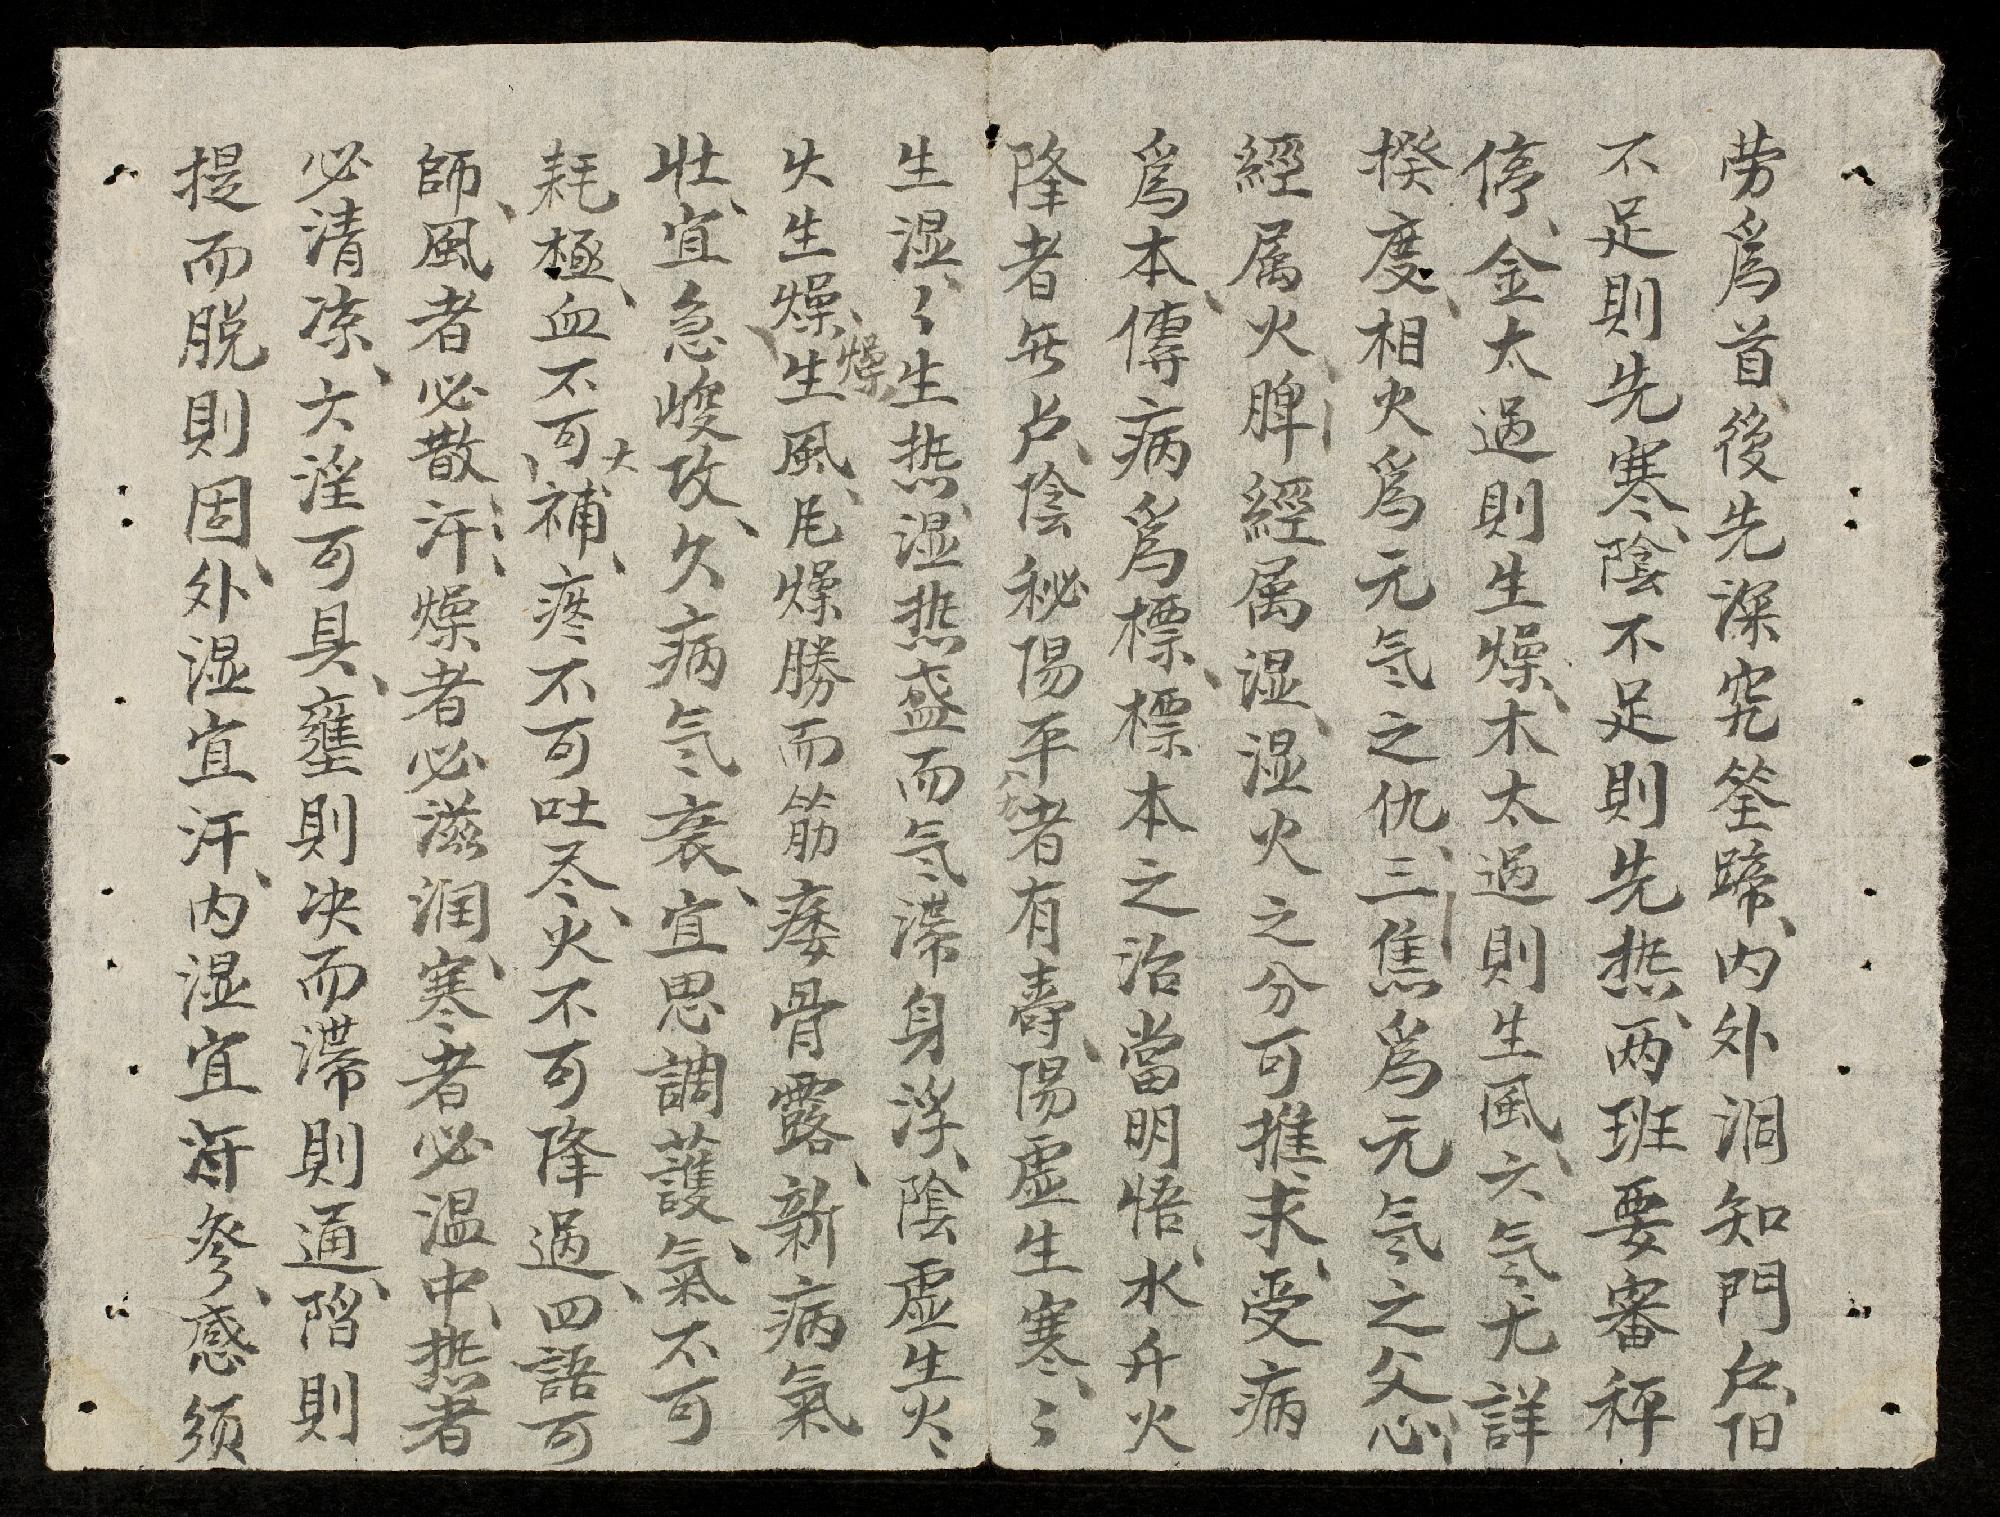 劳爲首、後先深究筌蹄、内外洞知門户、阳
不足則先寒、陰不足則先热、两班要審秤
停、金太過則生燥、木太過則生風、六气尤詳
揆度、相火爲元气之仇、三焦爲元气之父、心
經属火、脾經属湿、湿火之分可推求、受病
爲本、傳病爲標、標本之治當明悟、水升火
降者無户、陰秘陽平者有壽、陽虚生寒、〻
生湿、〻生热、湿热盛而气滞身浮、陰虚生火、
火生燥、燥生風、風燥勝而筋痿骨露、新病氣
壯、宜急峻攻、久病气衰、宜思調護、氣不可
耗極、血不可大補、痰不可吐尽、火不可降過、四語可
師、風者必散汗、燥者必滋潤、寒者必温中、热者
必清凉、六淫可具、壅則决而滞則通、陷則
提而脱則固、外湿宜汗、内湿宜参、感须